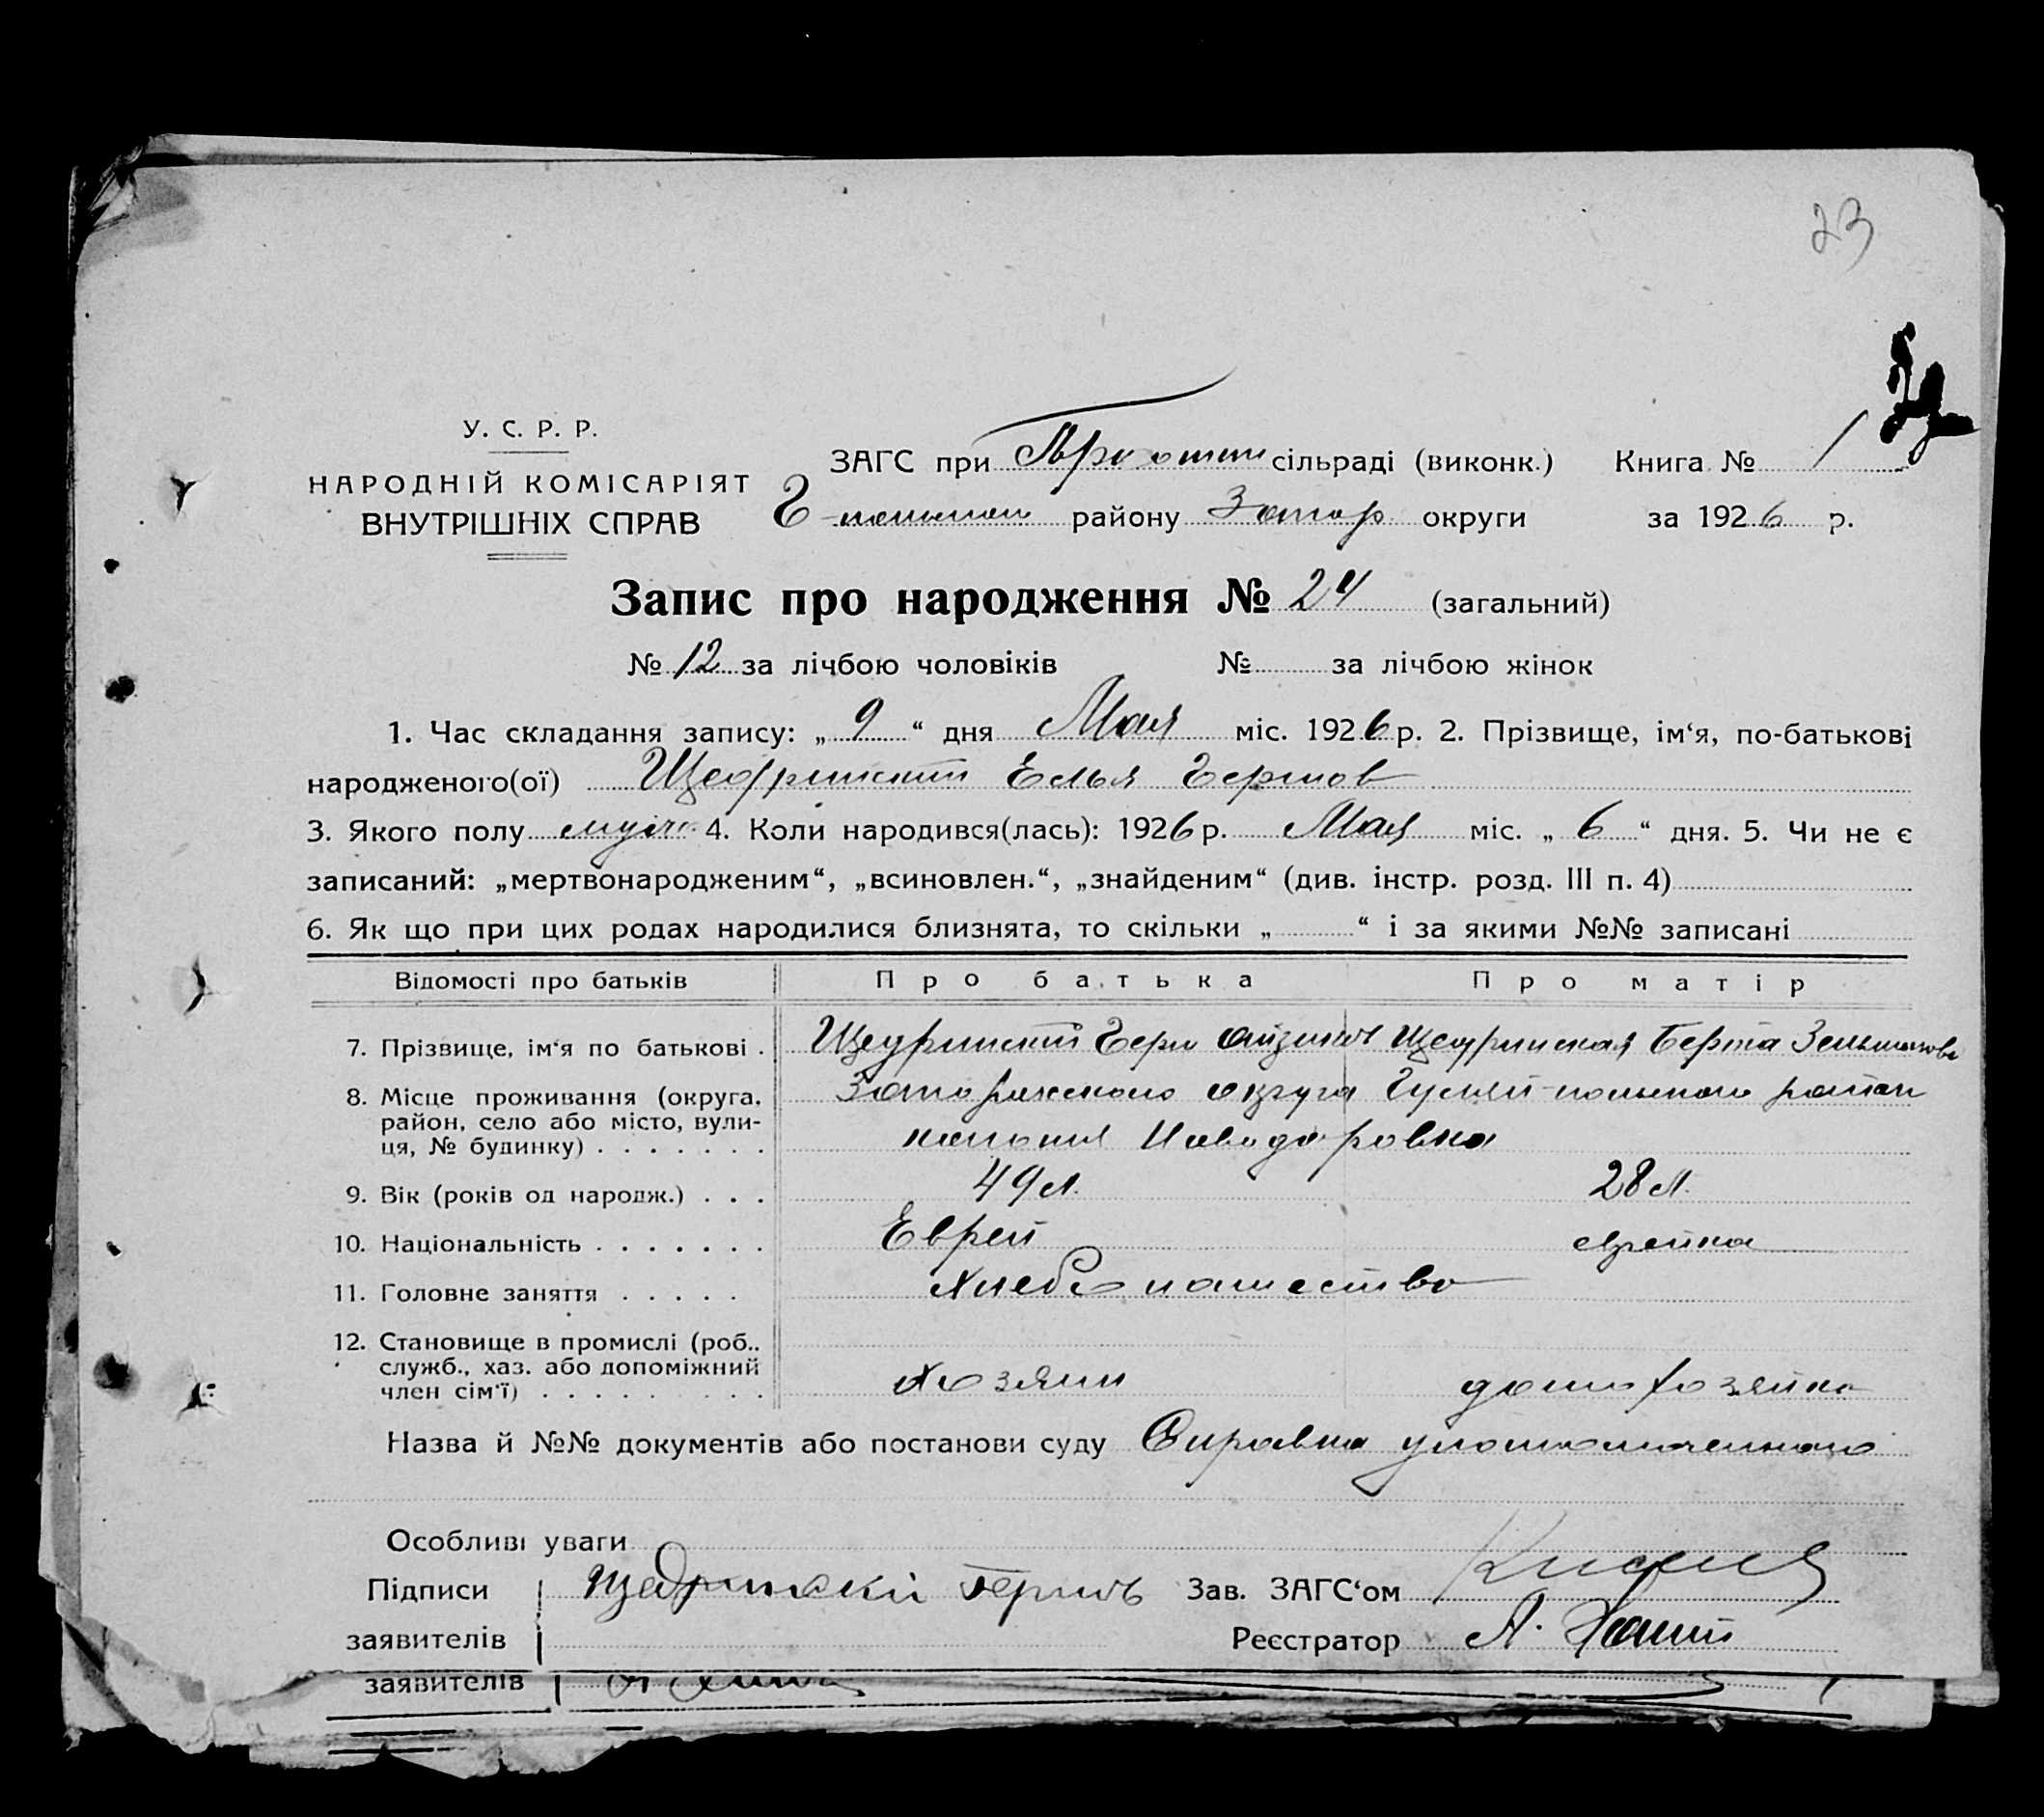 23
У. С. Р. Р.
НАРОДНІЙ КОМІСАРІЯТ
ВНУТРІШНІХ СПРАВ
ЗАГС при сільраді (виконк.) Книга № 1
Г- района району Запор округи за 1926 р.
Запис про народження № 24 (загальний)
№ 12 за лічбою чоловіків № за лічбою жінок
1. Час складання запису: „ 9 “ дня Мая міс. 1926 р. 2. Прізвище, ім‘я, по-батькові
народженого(ої) Щедринский Елья Гершов
3. Якого полу муж. 4. Коли народився(лась): 1926 р. Мая міс. „ 6 “ дня. 5. Чи не є
записаний: „мертвонародженим“, „всиновлен.“, „знайденим“ (див. інстр. розд. III п. 4)
6. Як що при цих родах народилися близнята, то скільки „ “ і за якими №№ записані
Відомості про батьків Про батька Про матір
7. Прізвище, ім‘я по батькові . Щедринский Герш Щедринская Берта
8. Місце проживання (округа, Запорожского округа Гуляй-польского район
район, село або місто, вули-
ця, № будинку) . . . . . . . колония Новодаровка
9. Вік (років од народж.) . . . 49 л. 28 л.
10. Національність . . . . . . . Еврей еврейка
11. Головне заняття . . . . . Хлебопашество
12. Становище в промислі (роб..
служб., хаз. або допоміжний
член сім‘ї) . . . . . . . . . Хозяин домохозяйка
Назва й №№ документів або постанови суду Справка уполномоченного
Особливі уваги
Підписи Щедринский Герш Зав. ЗАГС‘ом
заявителів Реєстратор А.
заявителів